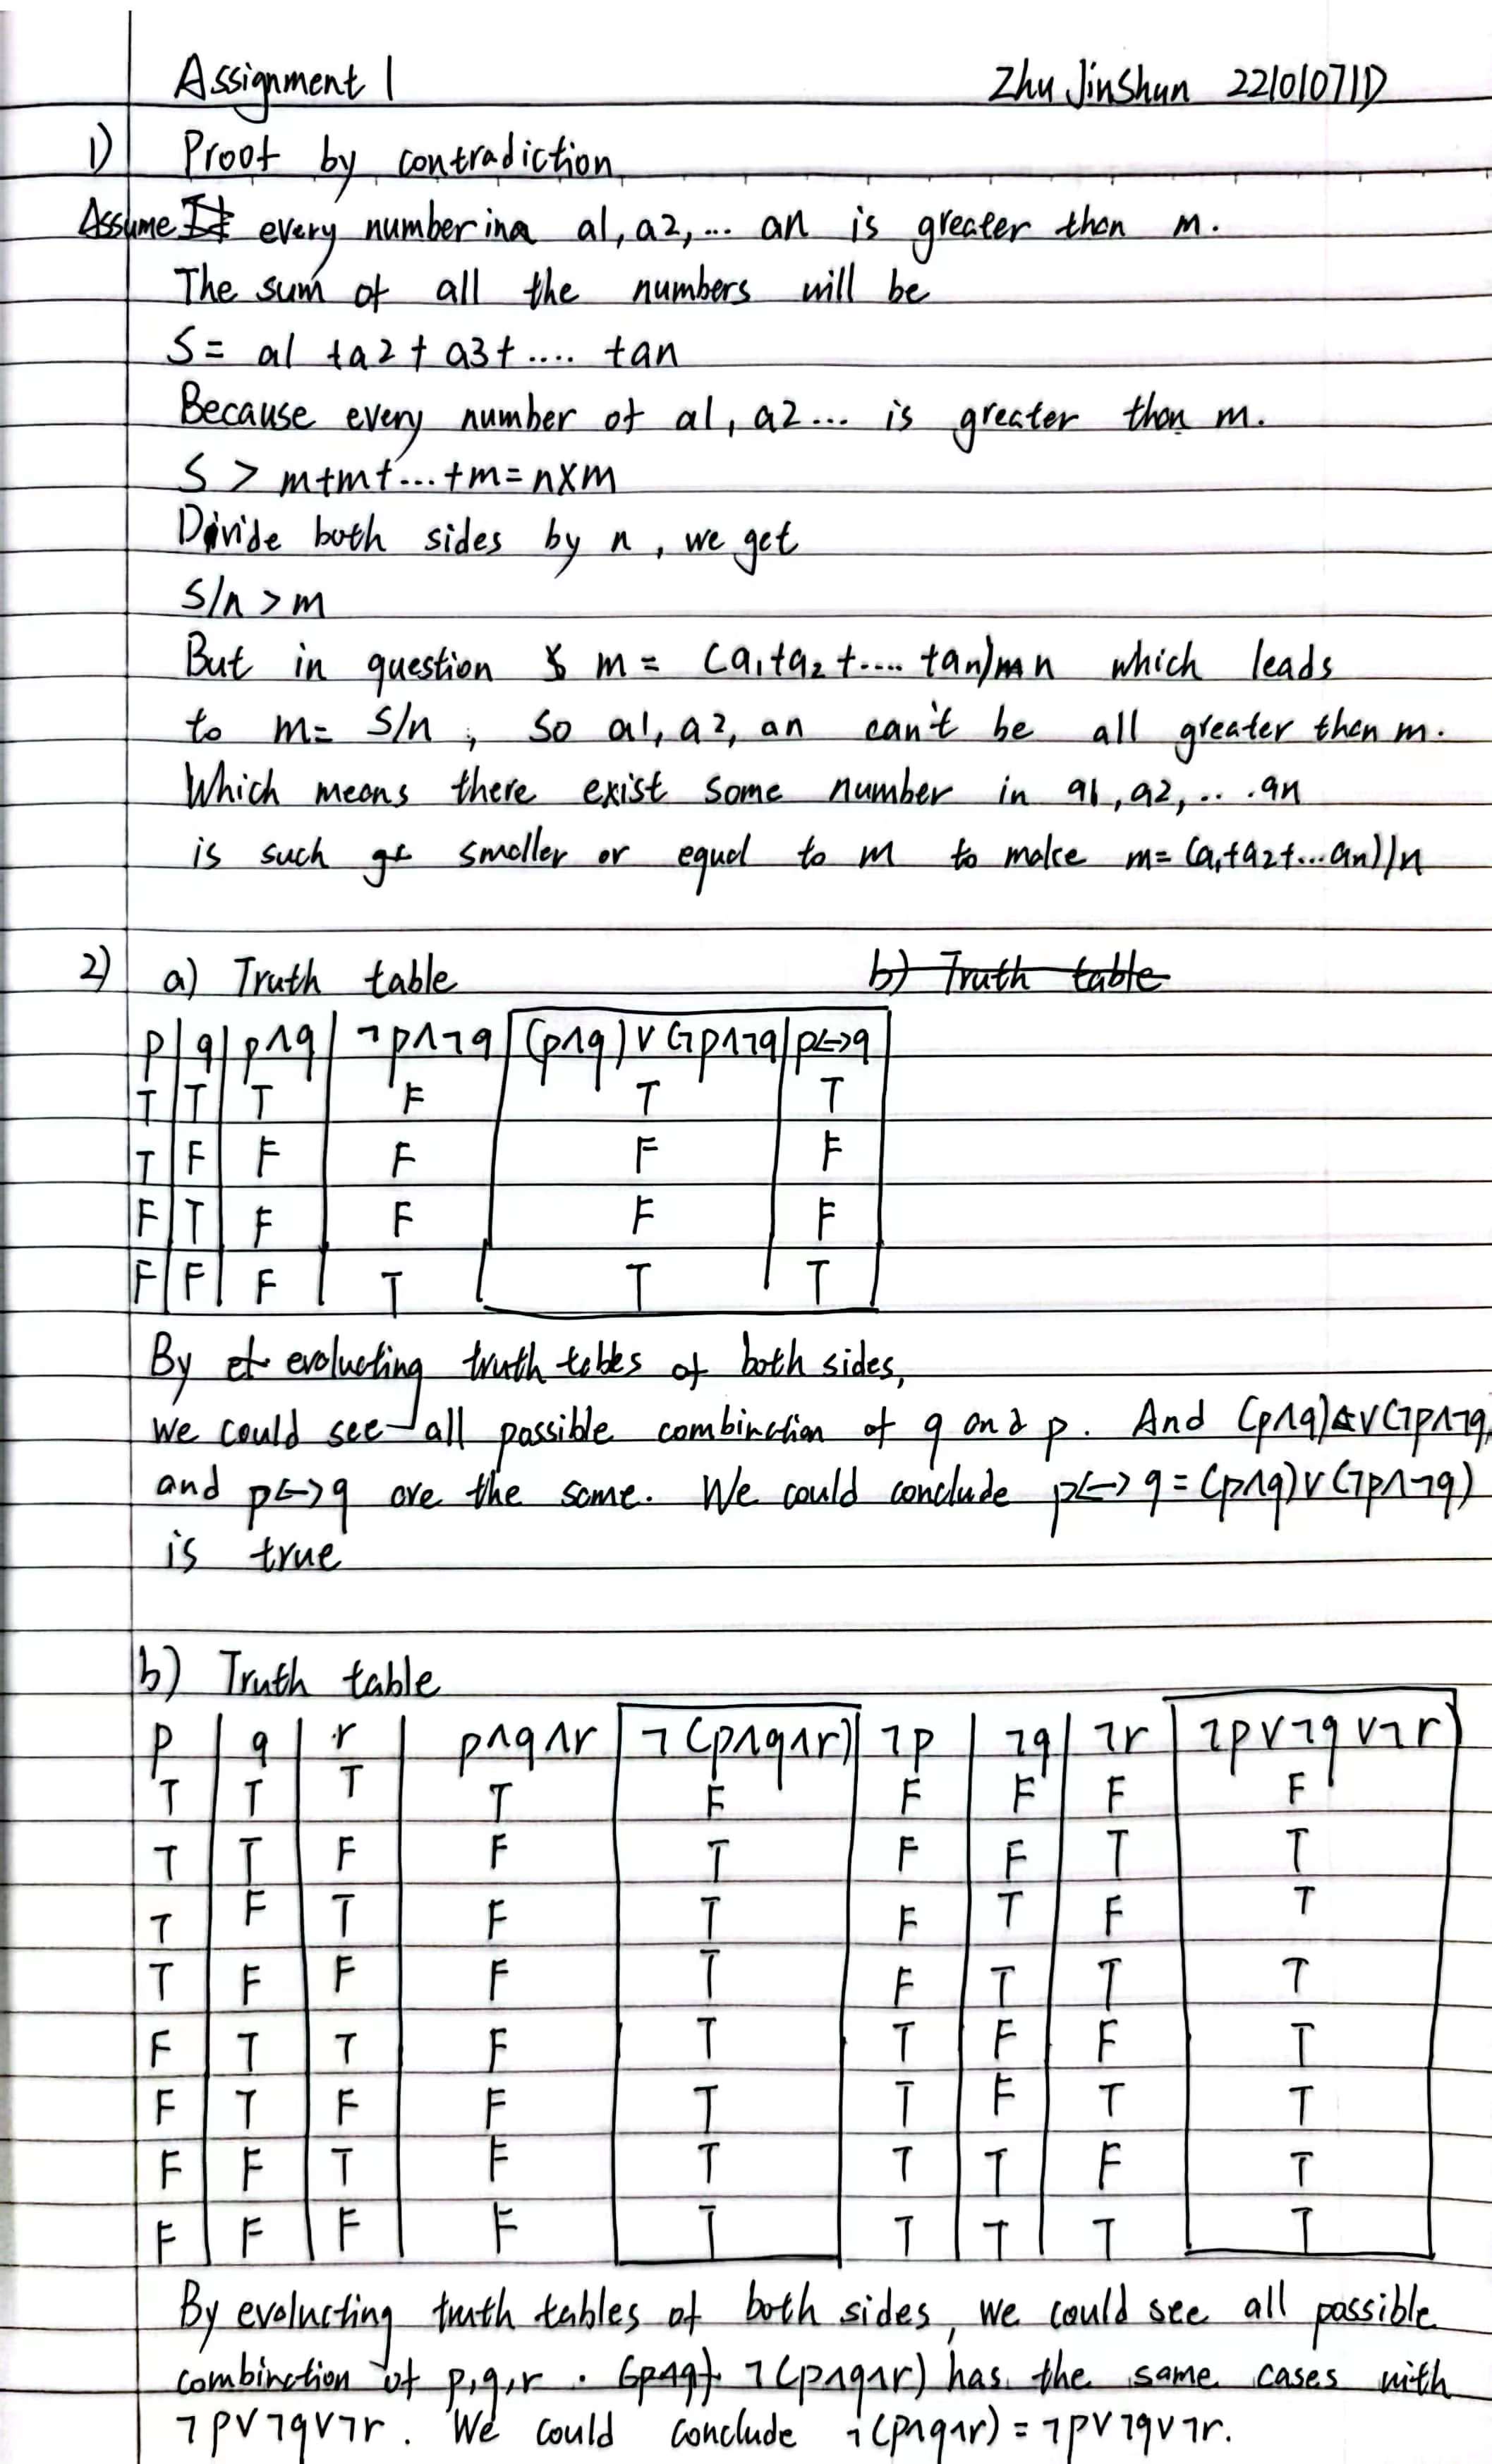 Assignment 1 Zhu JinShun 22101071D
1) Proof by contradiction
Assume every number in a a1, a2, ... an is greater than m.
The sum of all the numbers will be
S = a1 + a2 + a3 + .... + an
Because every number of a1, a2... is greater than m.
S > m+m+...+m = n×m
Divide both sides by n, we get
S/n > m
But in question m = (a₁+a₂+....+an)/n which leads
to m = S/n, so a1, a2, an can't be all greater then m.
Which means there exist some number in a1, a2, ... an
is such smaller or equal to m to make m = (a₁+a₂+...an)/n
2) a) Truth table b) Truth table
p | q | p∧q | ¬p∧¬q | (p∧q)∨(¬p∧¬q | p↔q
T | T | T | F | T | T
T | F | F | F | F | F
F | T | F | F | F | F
F | F | F | T | T | T
By evaluating truth tables of both sides,
we could see all possible combination of q and p. And (p∧q)∨(¬p∧¬q)
and p↔q are the same. We could conclude p↔q = (p∧q)∨(¬p∧¬q)
is true
b) Truth table
p | q | r | p∧q∧r | ¬(p∧q∧r) | ¬p | ¬q | ¬r | ¬p∨¬q∨¬r
T | T | T | T | F | F | F | F | F
T | T | F | F | T | F | F | T | T
T | F | T | F | T | F | T | F | T
T | F | F | F | T | F | T | T | T
F | T | T | F | T | T | F | F | T
F | T | F | F | T | T | F | T | T
F | F | T | F | T | T | T | F | T
F | F | F | F | T | T | T | T | T
By evaluating truth tables of both sides, we could see all possible
combination of p,q,r. (p∧q) ¬(p∧q∧r) has the same cases with
¬p∨¬q∨¬r. We could conclude ¬(p∧q∧r) = ¬p∨¬q∨¬r.